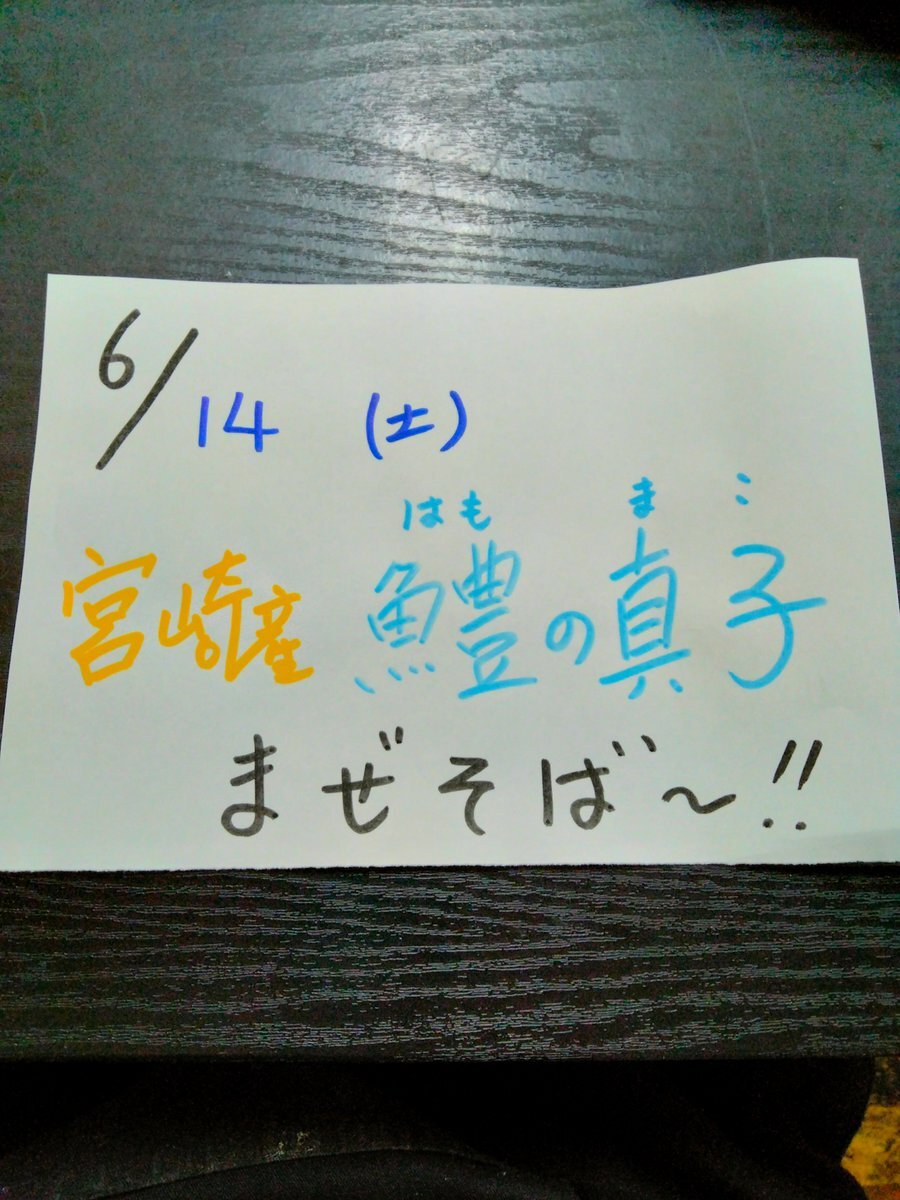 6/14 (土)
はも まこ
宮崎産 鱧の真子
まぜそば〜!!